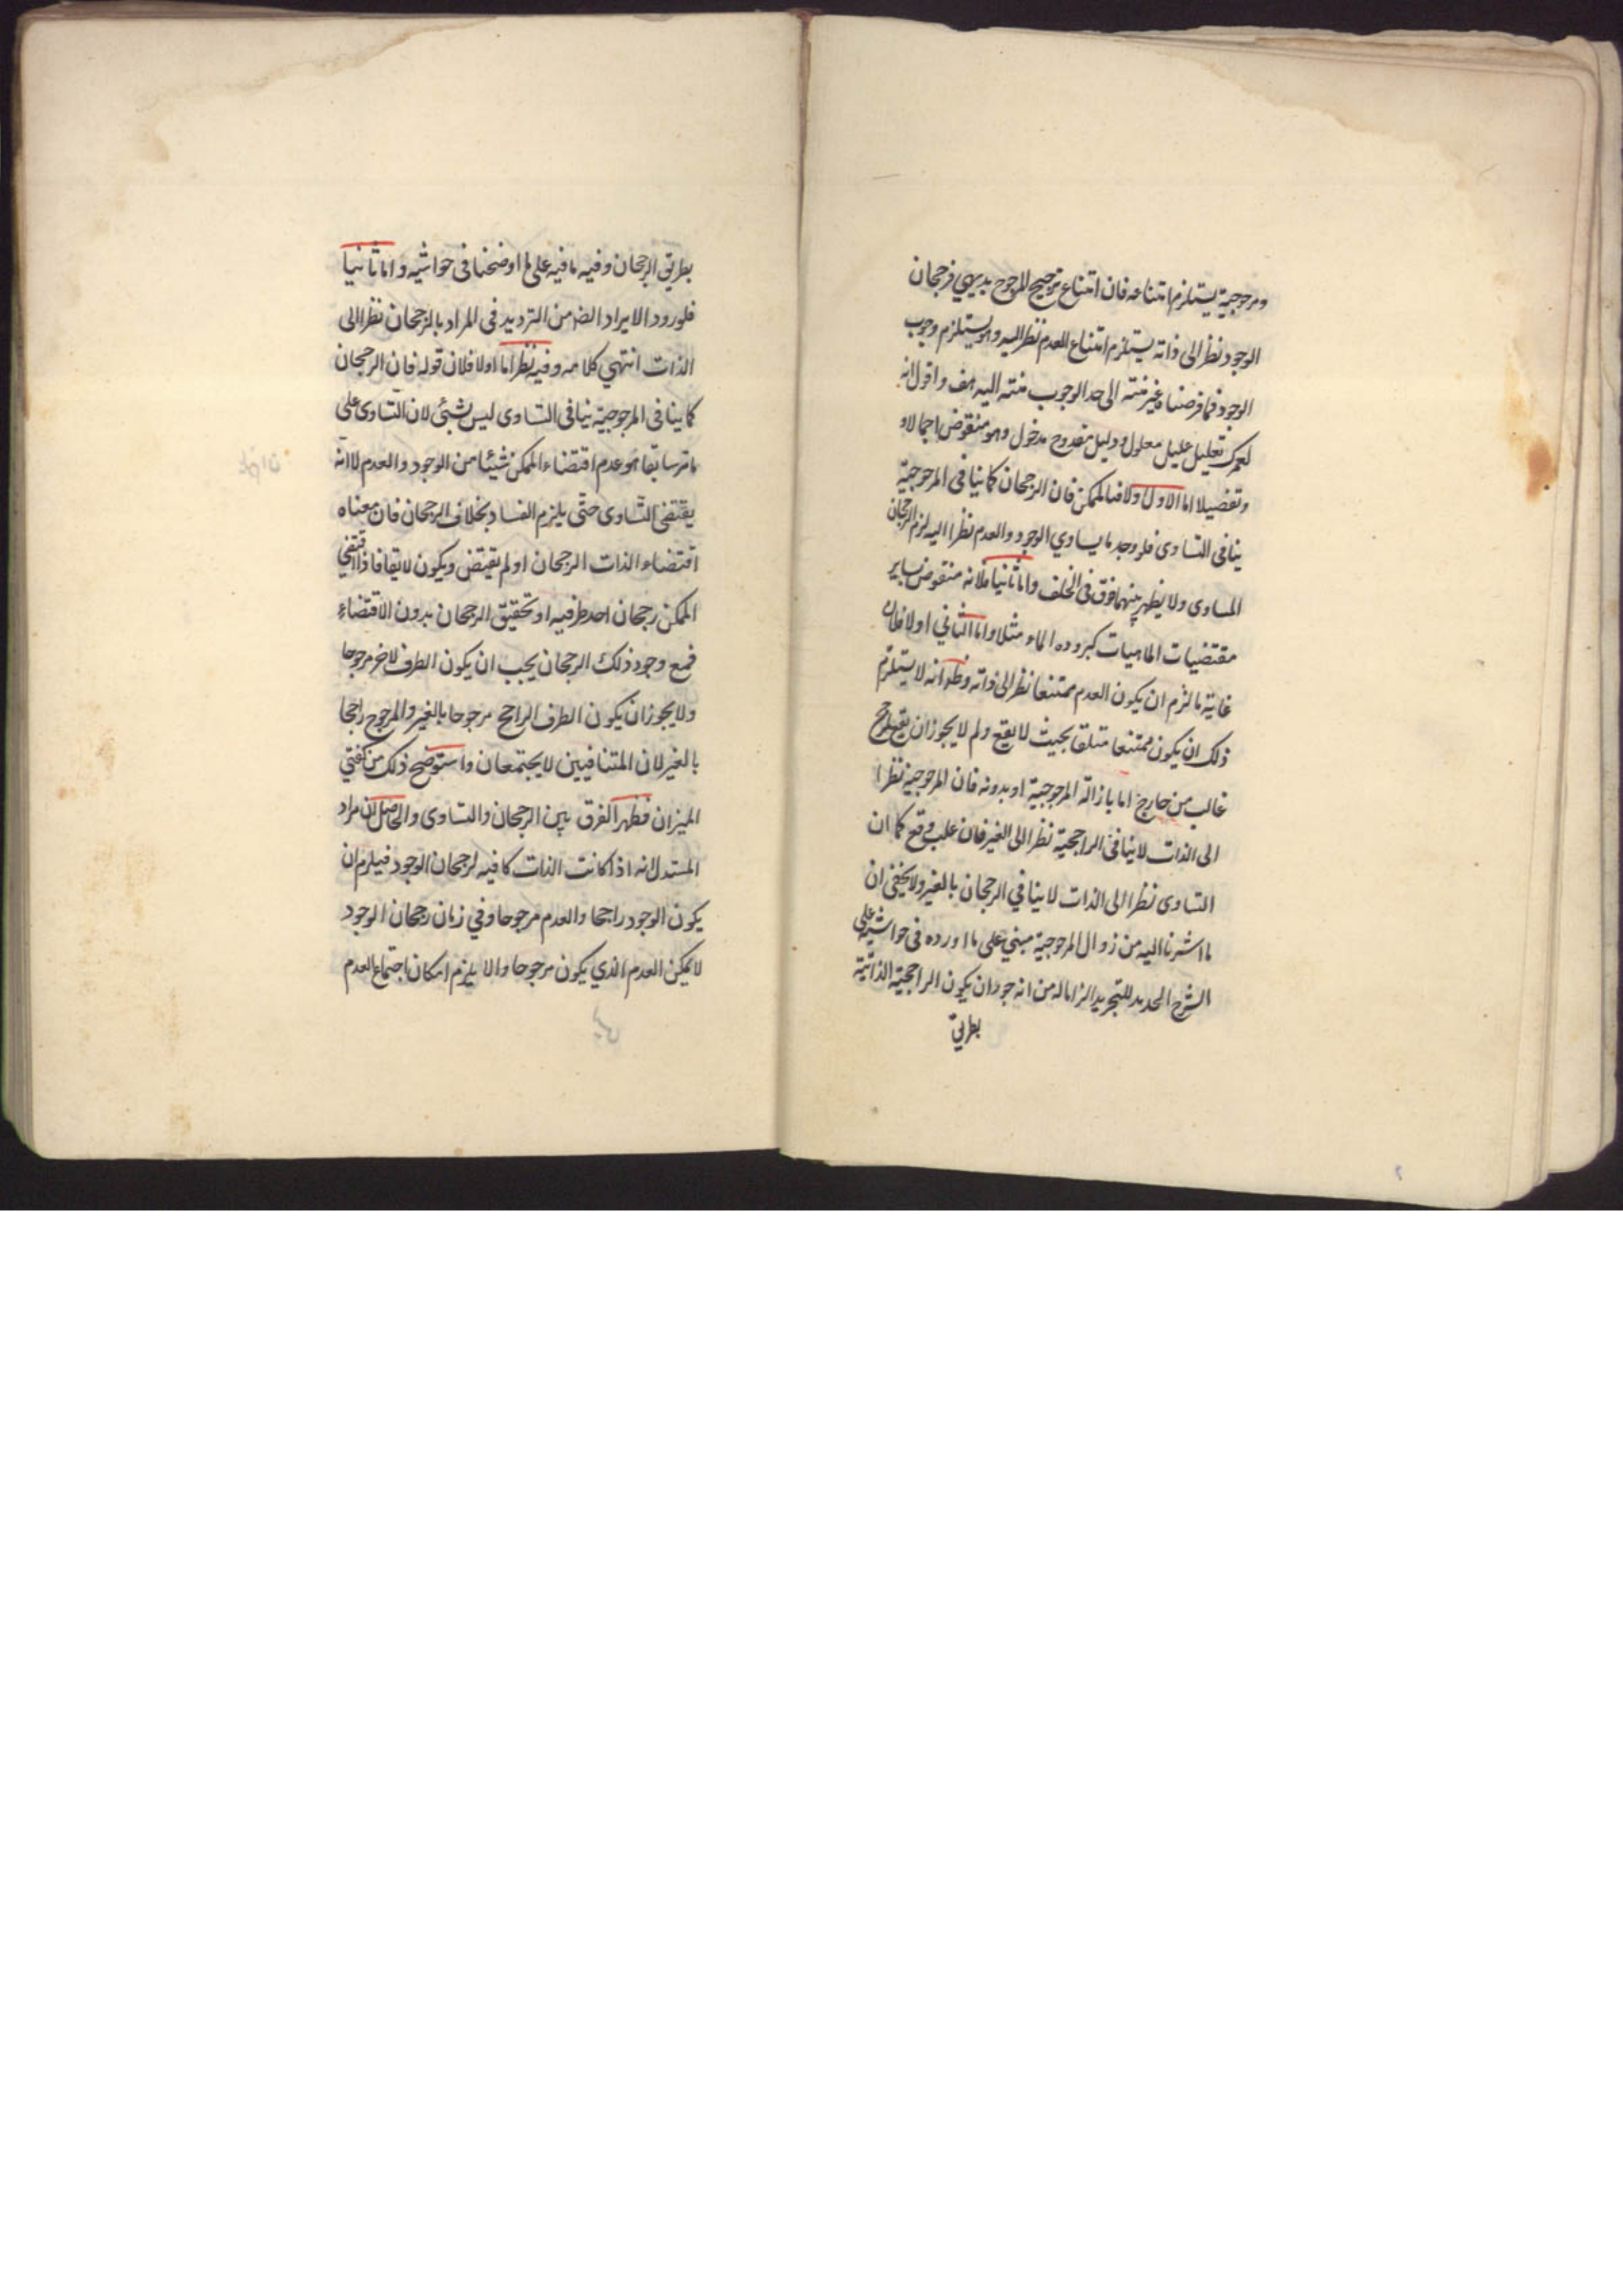 ومرجوحية يستلزم امتناعه فان امتناع ترجيح المرجوح بديهي فرجحان
الوجود نظرا الى ذاته يستلزم امتناع العدم نظرا اليه وهو يستلزم وجوب
الوجود فما فرضناه غير منته الى حد الوجوب منته اليه هف واقول انه
لعمرك تعليل عليل معلول ودليل مقدوح مدخول وهو منقوض اجمالا و
وتفصيلا اما الاول اولا فبالممكن فان الرجحان كما ينافى المرجوحية
ينافى التساوى فلو وجد ما يساوي الوجود والعدم نظرا اليه لزم الرجحان
المساوى ولا يظهر بينهما فرق فى الخلف واما ثانيا فلانه منقوض بساير
مقتضيات الماهيات كبرودة الماء مثلا واما الثاني اولا فلان
غاية ما لزم ان يكون العدم ممتنعا نظرا الى ذاته وظ انه لا يستلزم
ذلك ان يكون ممتنعا مطلقا بحيث لا يقع ولم لا يجوز ان يقع لمرجح
غالب من خارج اما بازالة المرجوحية او بدونه فان المرجوحية نظرا
الى الذات لا ينافى الراجحية نظرا الى الغير فان غلب وقع كما ان
التساوى نظرا الى الذات لا ينافي الرجحان بالغير ولا يخفى ان
ما اشرنا اليه من زوال المرجوحية مبني على ما اورده فى حواشيه على
الشرح الجديد للتجريد الزاما له من انه جوز ان يكون الراجحية الذاتية
بطريق
بطريق الرجحان وفيه ما فيه على ما اوضحنا فى حواشيه واما ثانيا
فلورود الايراد الض من الترديد فى المراد بالرجحان نظرا الى
الذات انتهي كلامه وفيه نظر اما اولا فلان قوله فان الرجحان
كما ينافى المرجوحية ينافى التساوى ليس بشئ لان التساوى على
ما مر سابقا هو عدم اقتضاء الممكن شيئا من الوجود والعدم لا انه
يقتضى التساوى حتى يلزم الفساد بخلاف الرجحان فان معناه
اقتضاء الذات الرجحان او لم تقتض ويكون لائقا فاذا اقتضي
الممكن رجحان احد طرفيه او تحقيق الرجحان بدون الاقتضاء
فمع وجود ذلك الرجحان يجب ان يكون الطرف الاخر مرجوحا
ولا يجوز ان يكون الطرف الراجح مرجوحا بالغير والمرجوح راجحا
بالغير لان المتنافيين لا يجتمعان واستوضح ذلك من كفتي
الميزان فظهر الفرق بين الرجحان والتساوى والحاصل ان مراد
المستدل انه اذا كانت الذات كافيه لرجحان الوجود فيلزم ان
يكون الوجود راجحا والعدم مرجوحا وفي زمان رجحان الوجود
لا يمكن العدم الذي يكون مرجوحا والا يلزم امكان اجتماع العدم